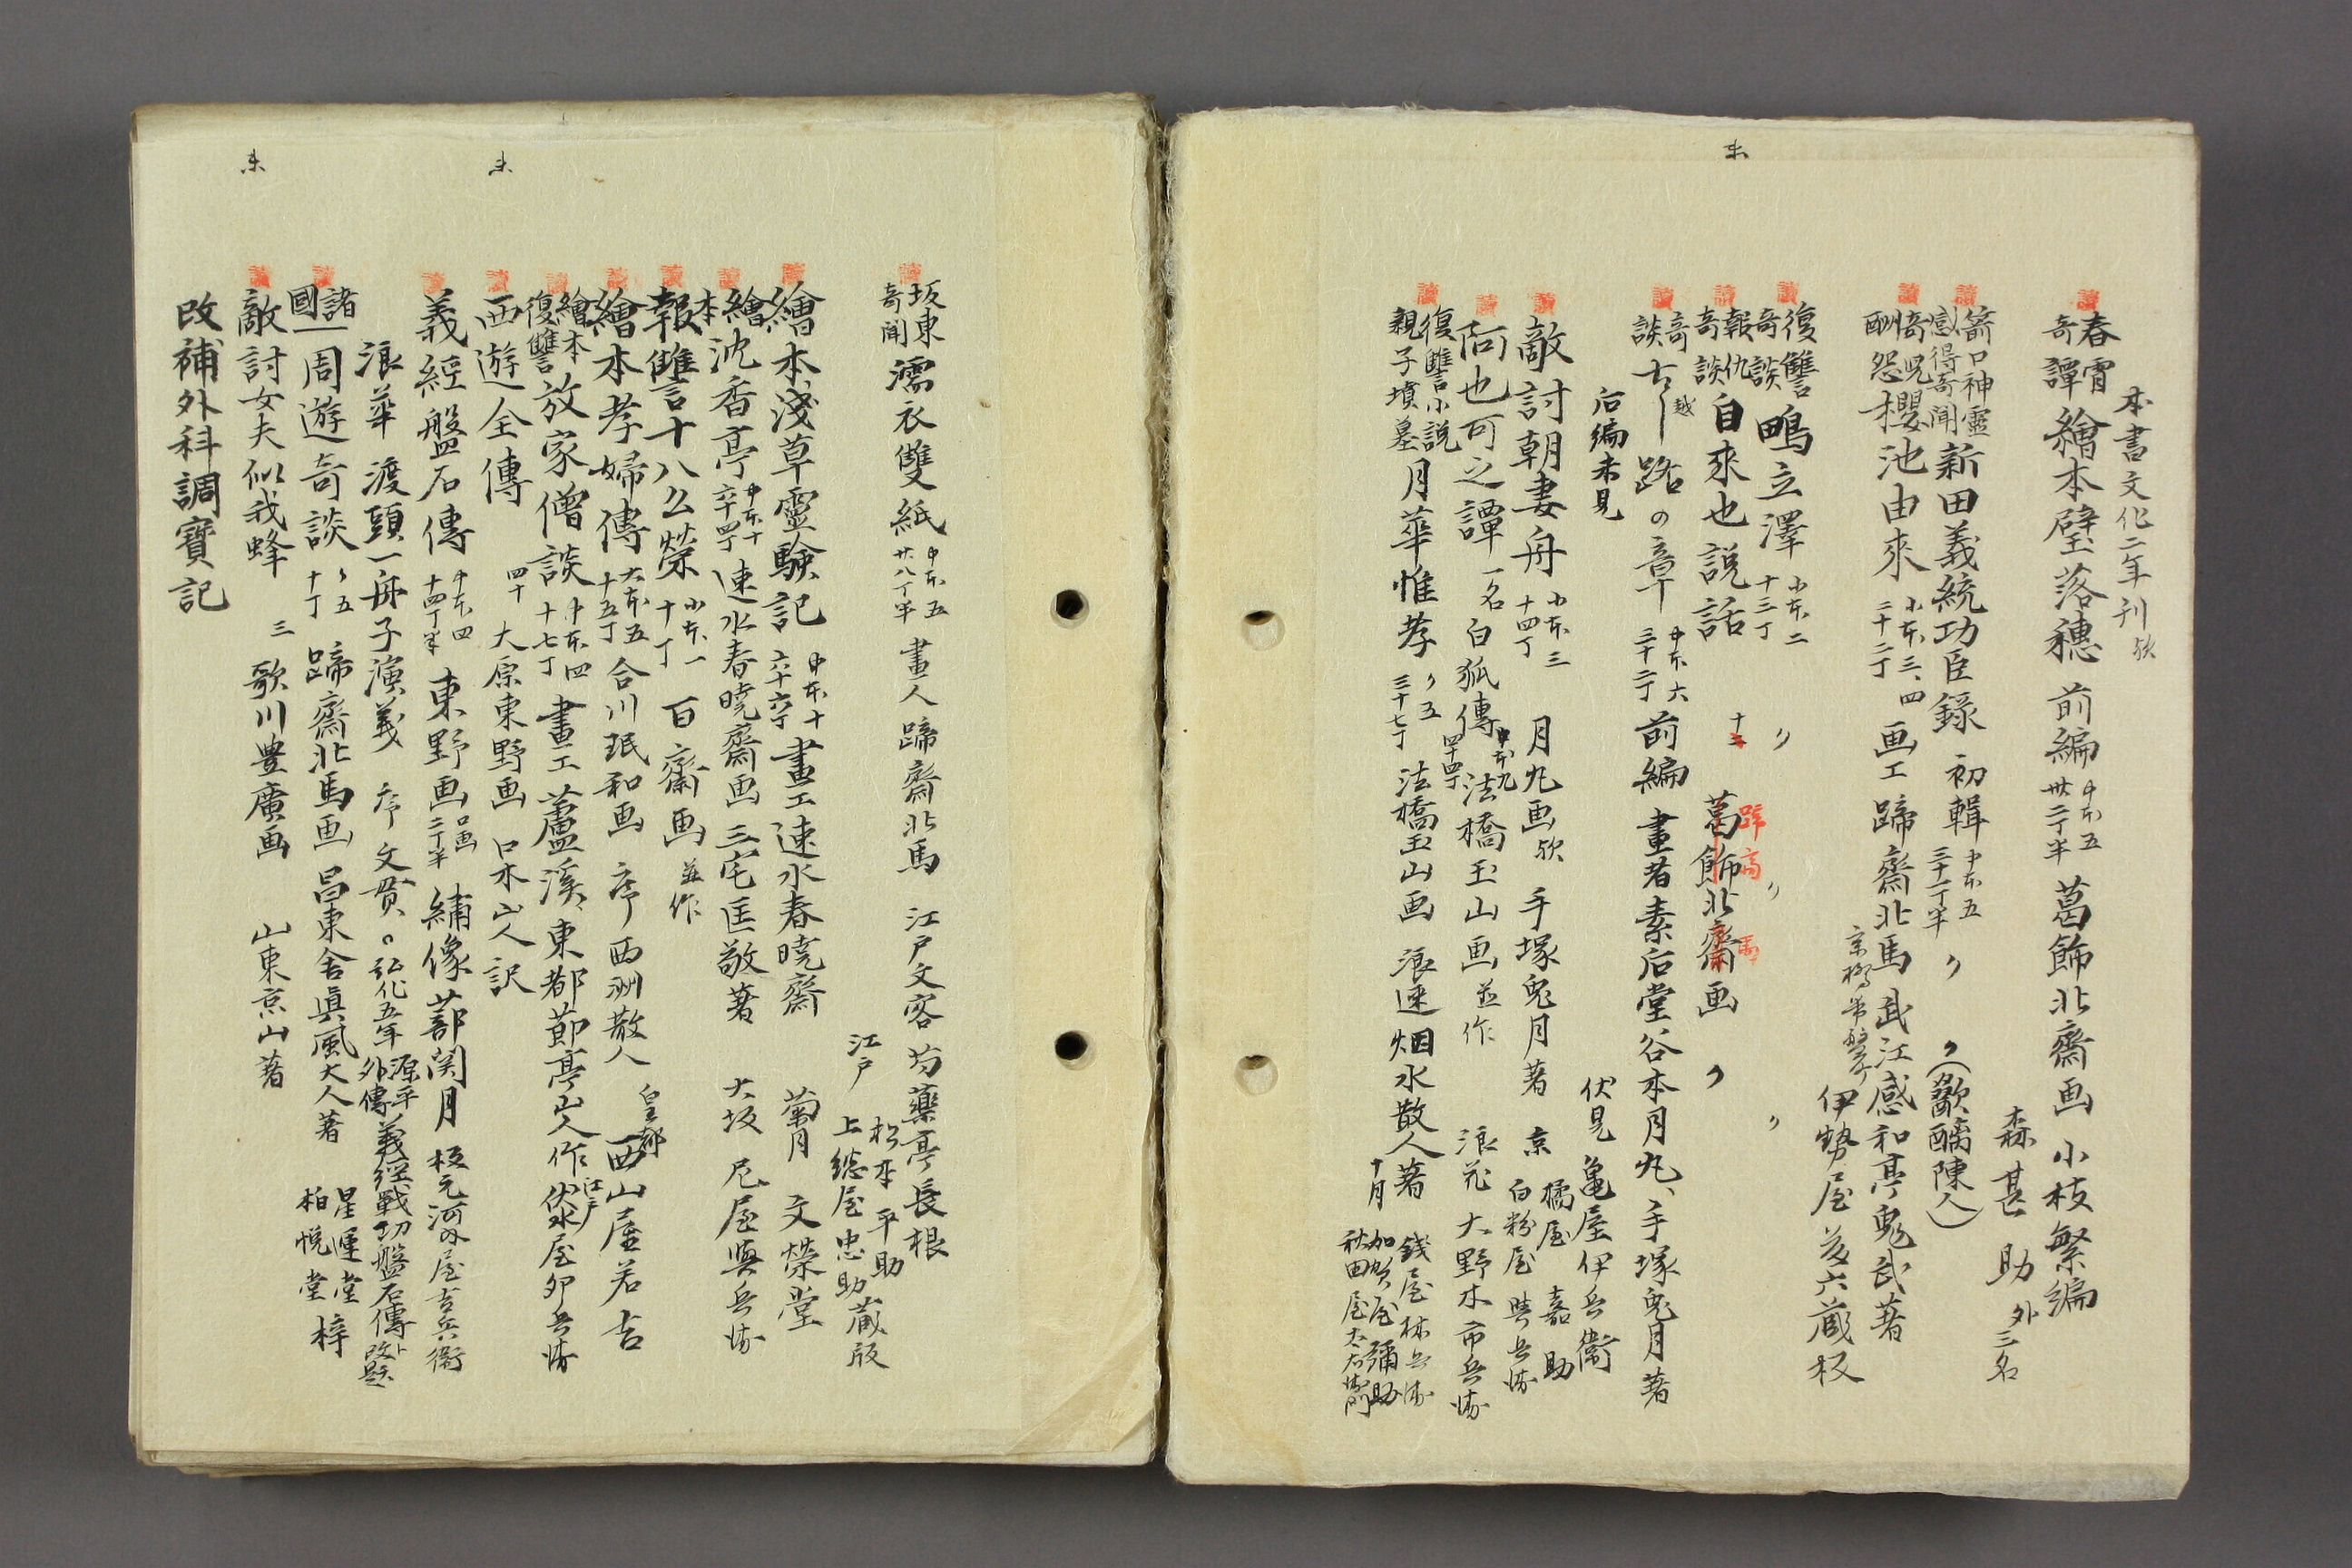 未
本書文化二年刊欤
讀
春宵奇譚 繪本璧落穗 前編 中本五 卅二丁半 葛飾北齋画 小枝繁編
森甚助 外三名
讀
箭口神靈感得奇聞 新田義統功臣錄 初輯 中本五 三十一丁半 〃 〃(歠醨陳人)
讀
奇児酬怨 櫻池由來 小本三、四 二十二丁 画工 蹄齋北馬 武江感和亭鬼武著
京橋常盤町 伊勢屋 蔵板
讀
復讐奇談 鴫立澤 小本二 十三丁 〃 〃 〃
讀
報仇奇談 自來也説話 十二 葛飾北齋画 〃
蹄高 馬
讀
奇談 古越路の章 中本六 三十二丁 前編 畫者素后堂谷本月丸、手塚兎月著
后編未見 伏見 亀屋伊兵衞
讀
敵討朝妻舟 小本三 十四丁 月丸画欤 手塚兎月著 京 橘屋嘉助
白粉屋與兵衛
讀
阿也可之譚 一名白狐傳 中本九 四十四丁 法橋玉山画並作 浪花 大野木市兵衛
讀
復讐小説 親子墳墓 月華惟孝 〃五 三十七丁 法橋玉山画 浪速烟水散人著 十月 錢屋林兵衛
加賀屋彌助
秋田屋太右衛門
未
未
讀
坂東奇聞 濡衣雙紙 中本五 廿八丁半 畫人 蹄齋北馬 江戸文客 芍藥亭長根
江戸 松本平助
上総屋忠助 蔵版
讀
繪本淺草靈驗記 中本十 六十六丁 畫工速水春曉齋 菊月 文榮堂
讀
繪本 沈香亭 中本十 六十四丁 速水春曉齋画 三宅匡敬著 大坂 尼屋與兵衛
讀
報讐十八公榮 小本一 十丁 百齋画 並作
讀
繪本孝婦傳 大本五 十五丁 合川珉和画 序 西洲散人 皇都 西山屋若吉
讀
繪本復讐 放家僧談 中本四 十七丁 畫工蘆溪、東都節亭山人作 江戸 伏水屋卯兵衛
讀
西遊全傳 四十 大原東野画 口木山人訳
讀
義經盤石傳 中本四 十四丁半 東野画 口画二丁半 繡像蔀関月 板元河内屋吉兵衞
浪華 渡頭一舟子演義 序 文貫。弘化五年 源平外傳 義經戰功盤石傳ト改題
讀
諸國一周遊奇談 〃五 十丁 蹄齋北馬画 昌東舎眞風大人著 星運堂
柏悦堂 梓
讀
敵討女夫似我蜂 三 歌川豊廣画 山東京山著
改補外科調寶記